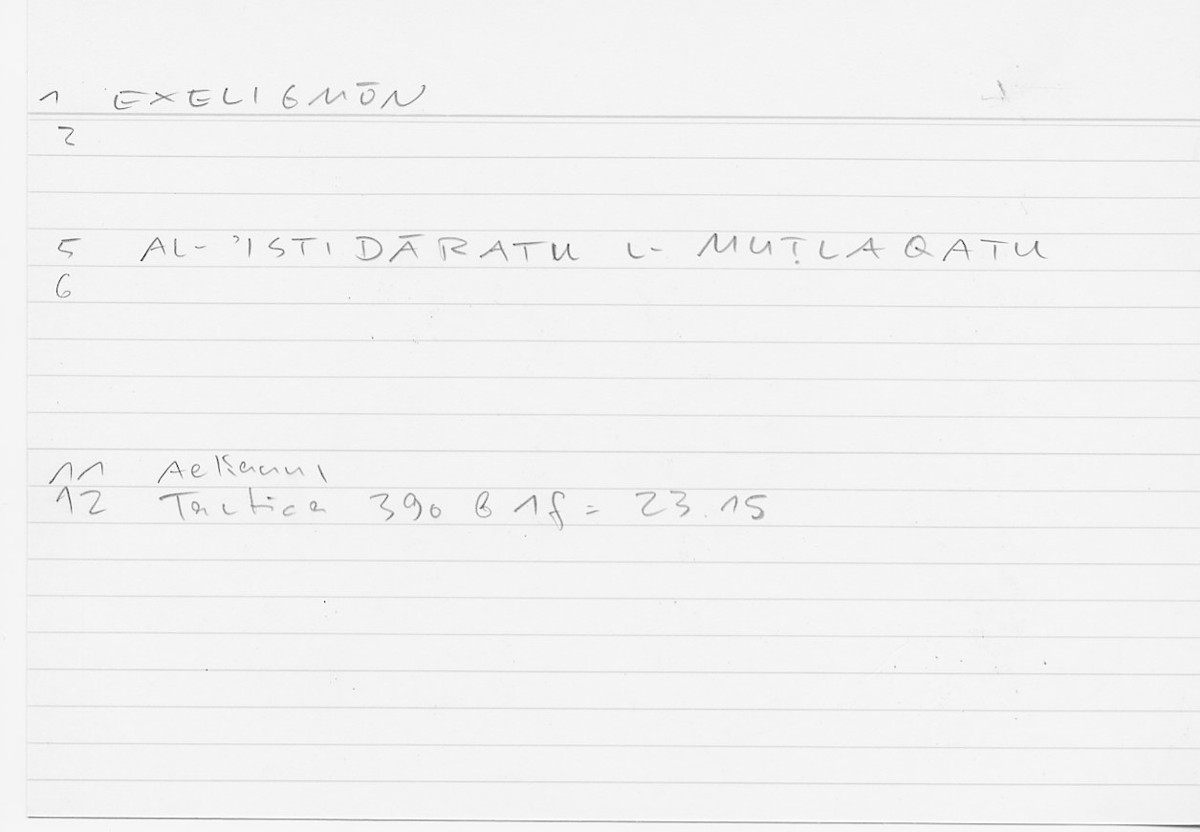 1 EXELIGMŌN
2
5 AL-ʾISTIDĀRATU L-MUṬLAQATU
6
11 Aeliani
12 Tactica 390 B 1f = 23.15